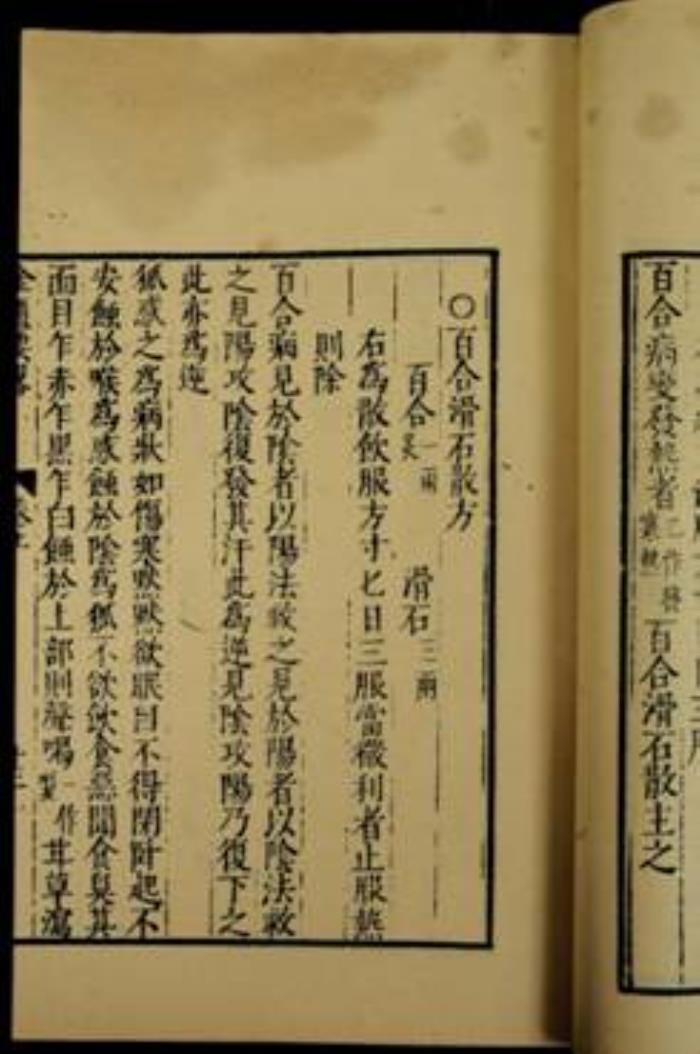 百合病變發熱者一作發寒熱百合滑石散主之
○百合滑石散方
百合一兩炙 滑石三兩
右為散飲服方寸匕日三服當微利者止服熱
則除
百合病見於陰者以陽法救之見於陽者以陰法救
之見陽攻陰復發其汗此為逆見陰攻陽乃復下之
此亦為逆
狐惑之為病狀如傷寒默默欲眠目不得閉臥起不
安蝕於喉為惑蝕於陰為狐不欲飲食惡聞食臭其
面目乍赤乍黑乍白蝕於上部則聲喝一作嗄甘草瀉